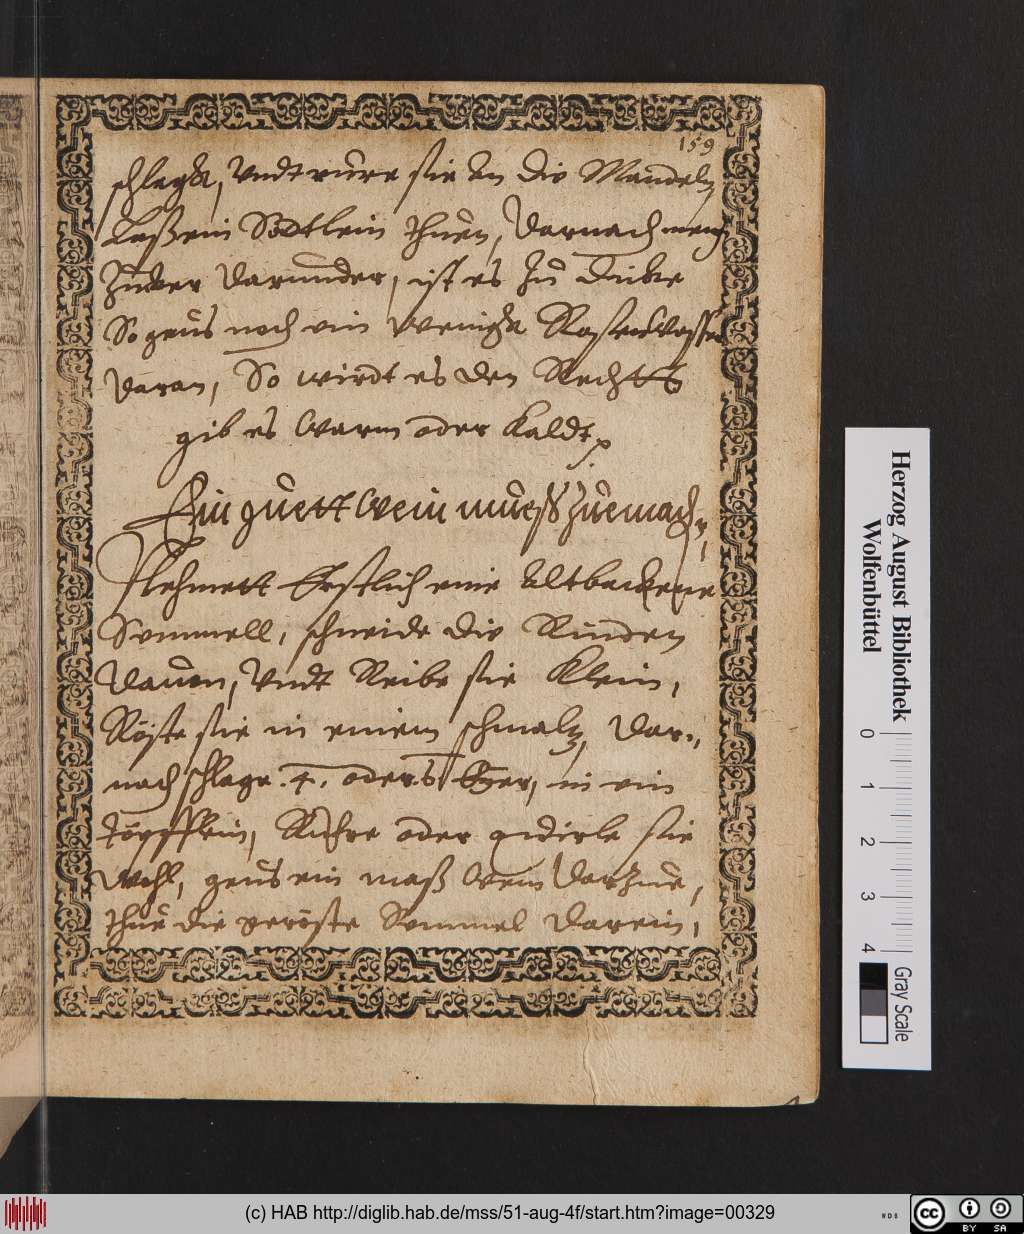 159
schlagen, Vndt rüre sie an die Mandeln
Laß ein Södtlein thuen, Darnach meng
Zucker Darunder, ist es Zu Dicke
So geus noch ein wenigk Rosenwasser
Daran, So wirdt es den Rechtt
gib es Warm oder Kaldt
Ein guett Wein mueß Zuemach,
Nehmett Erstlich eine Altbackene
Semmell, schneide die Rinden
Davon, Vndt Reibe sie Klein,
Röste sie in einem schmaltz, Dar,,
nach schlage 4. oder 5 Eyer, in ein
töpfflein, Rühre oder quirle sie
Wohl, geus ein maß Wein Darzue,
thue die geröste Semmel Darein,
Herzog August Bibliothek
Wolfenbüttel
0 1 2 3 4
Gray Scale
(c) HAB http://diglib.hab.de/mss/51-aug-4f/start.htm?image=00329
WDB
cc BY SA